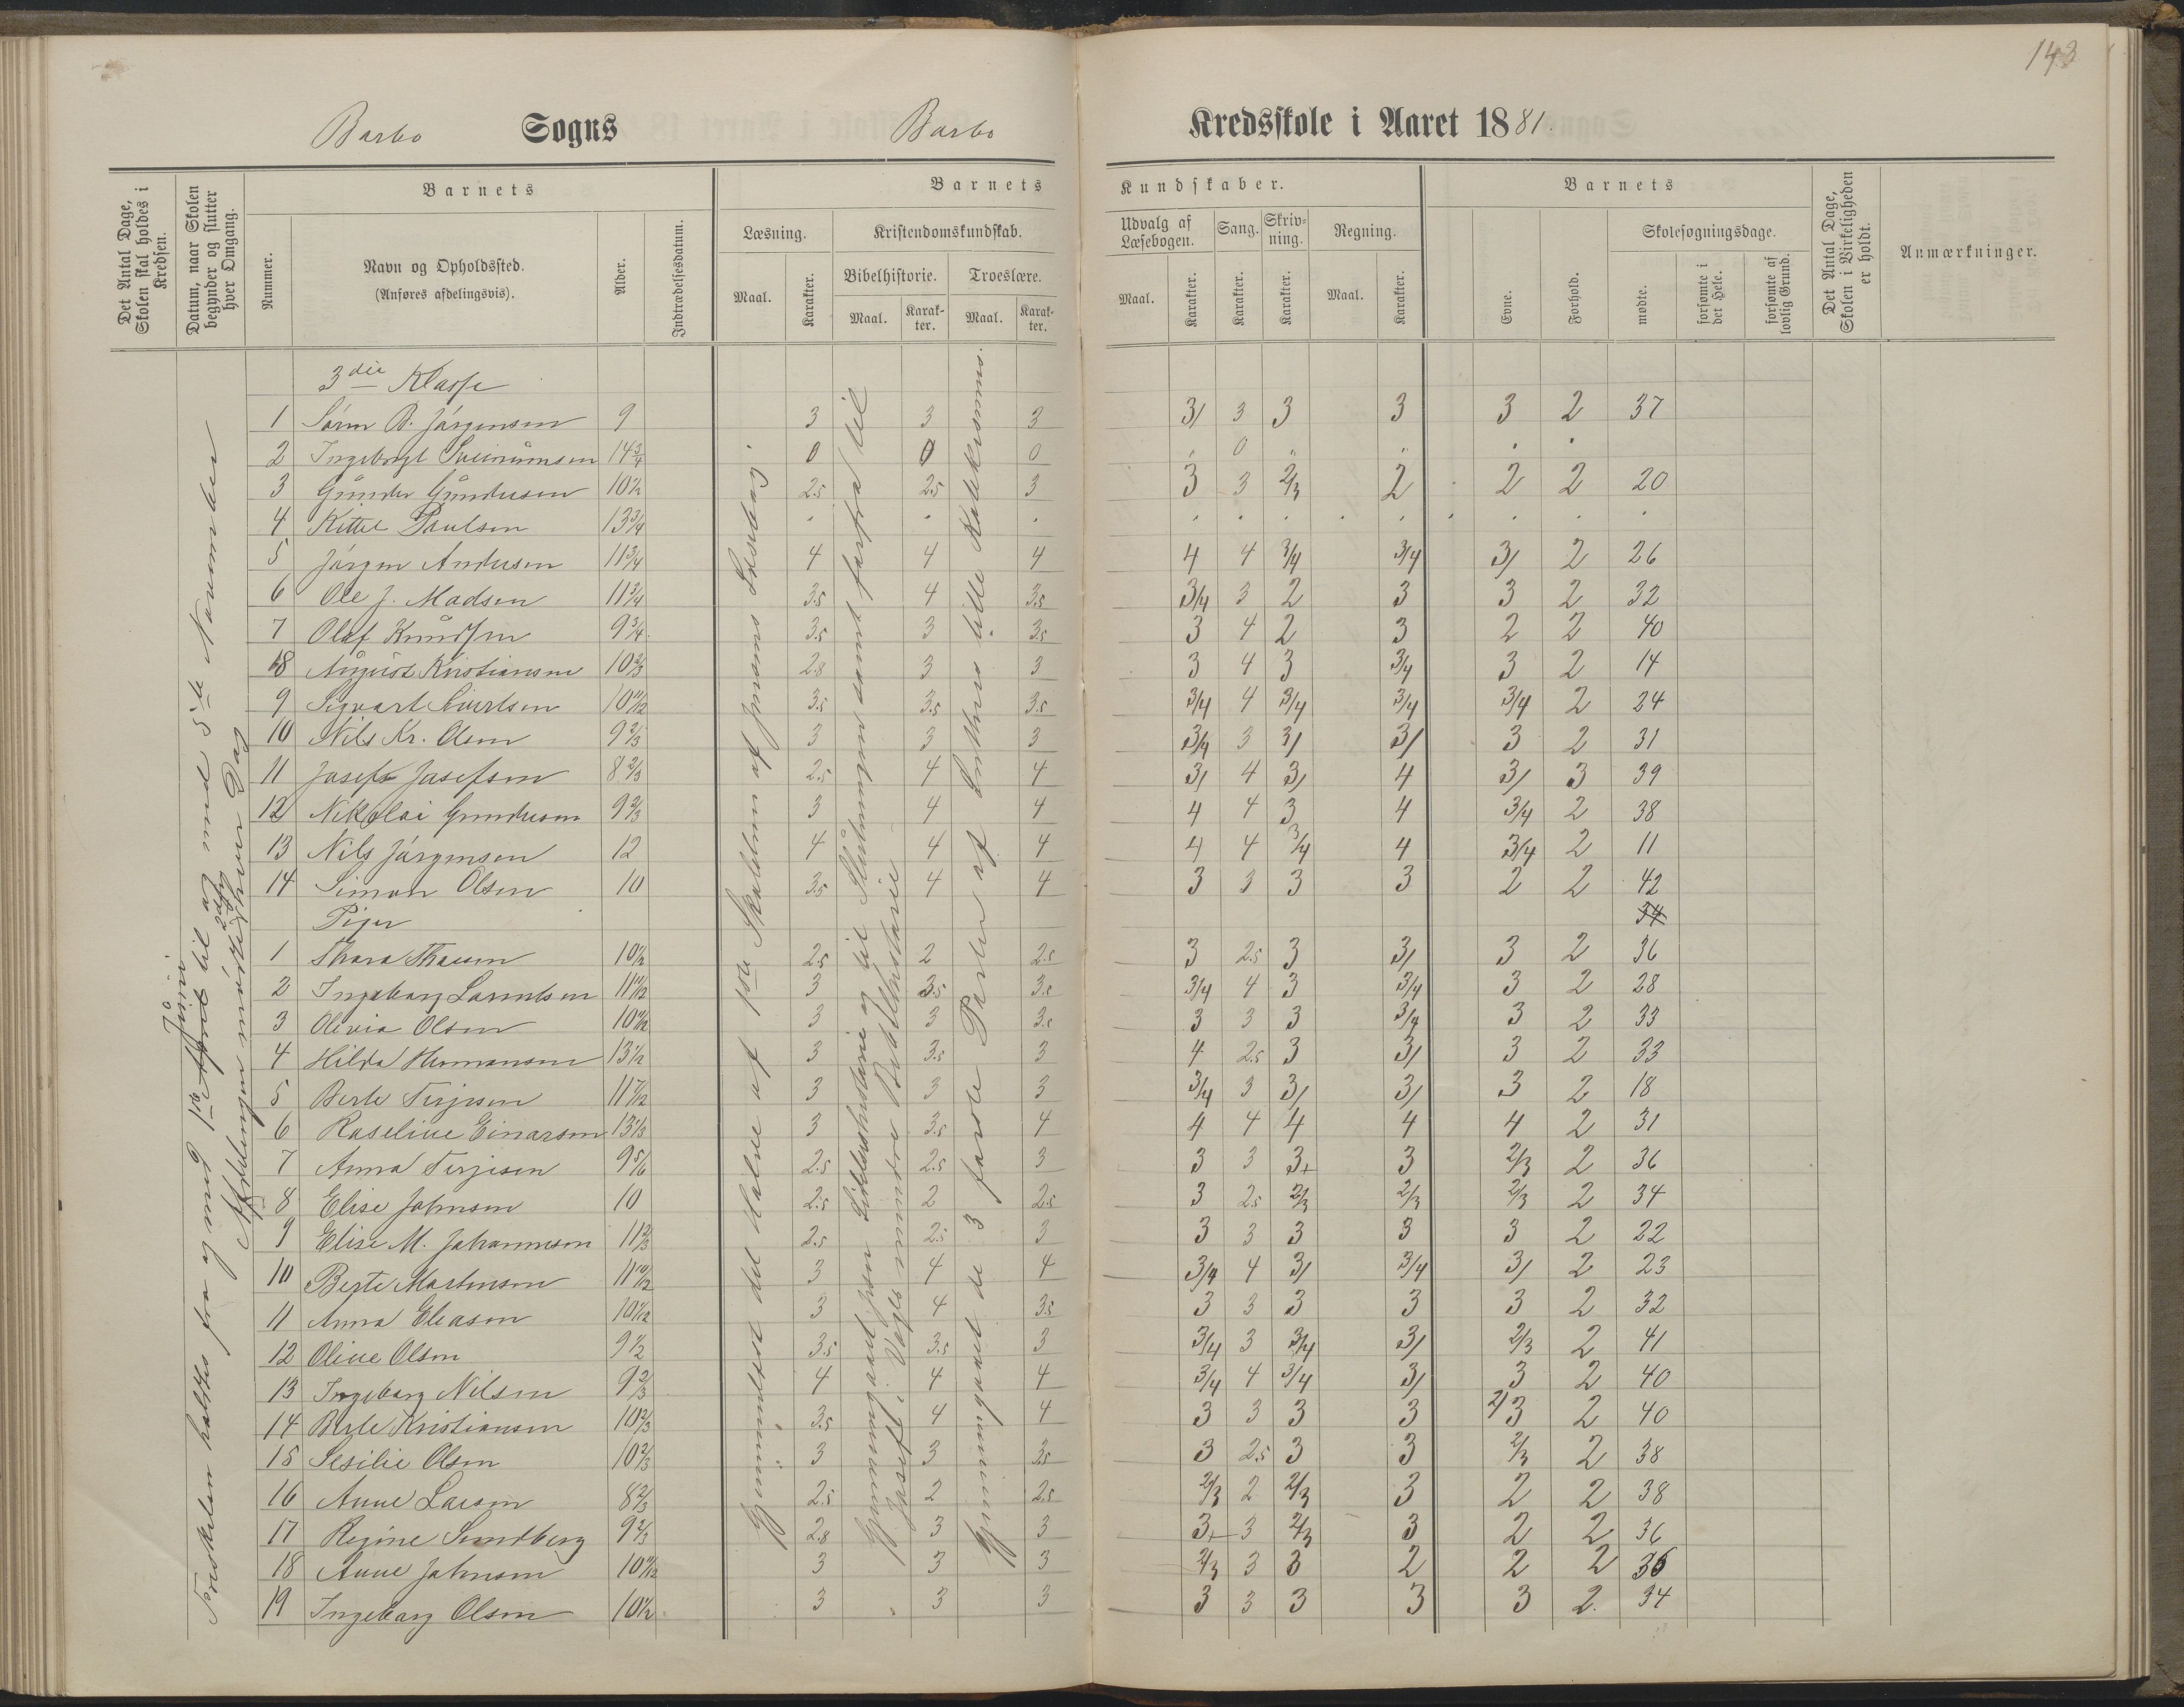 143
Barbo Sogns Barbo Kredsskole i Aaret 1881.
Det Antal Dage, Skolen skal holdes i Kredsen.
Datum, naar Skolen begynder og slutter hver Omgang.
Barnets
Nummer.
Navn og Opholdssted.
(Anføres afdelingsvis).
Alder.
Indtrædelsesdatum.
Barnets Kundskaber.
Læsning.
Maal. Karakter.
Kristendomskundskab.
Bibelhistorie. Troeslære.
Maal. Karakter. Maal. Karakter.
Udvalg af Læsebogen. Sang. Skrivning. Regning.
Maal. Karakter. Karakter. Karakter. Maal. Karakter.
Barnets
Evne. Forhold.
Skolesøgningsdage.
mødte. forsømte i det Hele. forsømte af lovlig Grund.
Det Antal Dage, Skolen i Virkeligheden er holdt.
Anmærkninger.
3die Klasse
1 Sørin B. Jørgensen 9 3 3 3 3/ 3 3 3 3 2 37
2 Ingebregt 14 3/4 0 0 0 " 0 " " . .
3 Gunder Gundersen 10 1/2 2.5 2.5 3 3 3 2/3 2 2 2 20
4 Kittel Paulsen 13 3/4 . . . . . . . . . . . .
5 Jørgen Andersen 11 3/4 4 4 4 4 4 3/4 3/4 3/ 2 26
6 Ole J. Madsen 11 3/4 3.5 4 3.5 3/4 3 2 3 3 2 32
7 Olaf Knudsen 9 3/4 3.5 3 3.5 3 4 2 3 2 2 40
8 August Kristiansen 10 2/3 2.8 3 3 3 4 3 3/4 3 2 14
9 Sigvart Sivertsen 10 11/12 3.5 3.5 3.5 3/4 4 3/4 3/4 3/4 2 24
10 Nils Kr. Olsen 9 2/3 3 3 3 3/4 3 3/ 3/ 3 2 31
11 Josef Josefsen 8 2/3 2.5 4 4 3/ 4 3/ 4 3/ 3 39
12 Nikolai Gundersen 9 2/3 3 4 4 4 4 3 4 3/4 2 38
13 Nils Jørgensen 12 4 4 4 4 4 3/4 4 3/4 2 11
14 Simon Olsen 10 3.5 4 4 3 3 3 3 2 2 42
Piger 34
1 Thora 10 1/2 2.5 2 2.5 3 2.5 3 3/ 3 2 36
2 Ingeborg Lorentsen 11 11/12 3 3.5 3.5 3/4 4 3 3/4 3 2 28
3 Olivia Olsen 3 3 3.5 3 3 3 3/4 3 2 33
4 Hilda Hermansen 13 1/2 3 3.5 3 4 2.5 3 3/ 3 2 33
5 Berte Terjesen 11 7/12 3 3 3 3/4 3 3/ 3/ 3 2 18
6 Roseline Einarsen 13 1/3 3 3.5 4 4 4 4 4 4 2 31
7 Anna Terjesen 9 5/6 2.5 2.5 3 3 3 3+ 3 2/3 2 36
8 Elise Johnsen 10 2.5 2 2.5 3 2.5 2/3 2/3 2/3 2 34
9 Elise M. Johannesen 11 2/3 2.5 2.5 3 3 3 3 3 3 2 22
10 Berte Martinsen 11 10/12 3 4 4 3/4 4 3/ 3/4 3/ 2 23
11 Anna Eleasen 10 1/12 3 4 3.5 3 3 3 3 3 2 32
12 Oline Olsen 9 1/2 3.5 3.5 3 3/4 3 3/4 3/ 2/3 2 41
13 Ingeborg Nilsen 9 2/3 4 4 4 3/4 4 3/4 3/ 3 2 40
14 Berte Kristiansen 10 2/3 3.5 4 4 3 3 3 3 2/3 2 40
15 Sesilie Olsen 10 2/3 3 3 3.5 3 2.5 3 3 2/3 2 38
16 Anne Larsen 8 2/3 2.5 2 2.5 2/3 2 2/3 3 2 2 38
17 Regine Sundberg 9 2/3 2.8 3 3 3+ 3 2/3 3 2 2 36
18 Anne Johnsen 10 11/12 3 3 3 2/3 3 3 2 2 2 36
19 Ingeborg Olsen 10 1/2 3 3 3 3 3 3 3 3 2 34
holdtes fra og med 1ste April Juni til og med 5te November
Afdelingen mødte hver 2den Dag
Gjennemlæst det Halve af 1ste Skoletrin af Jensens Læsebog.
Gjennemgaaet Jesu Lidelseshistorie og til Slutningen samt forfra til
Josef i Vogts mindre Bibelhistorie
Gjennemgaaet de 3 første Parter af Luthers lille Katekismus.